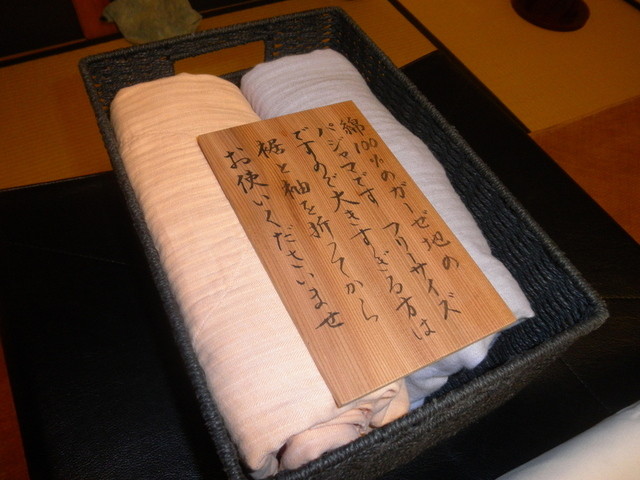 綿100%のガーゼ地の
パジャマです フリーサイズ
ですので大きすぎる方は
裾と袖を折ってから
お使いくださいませ